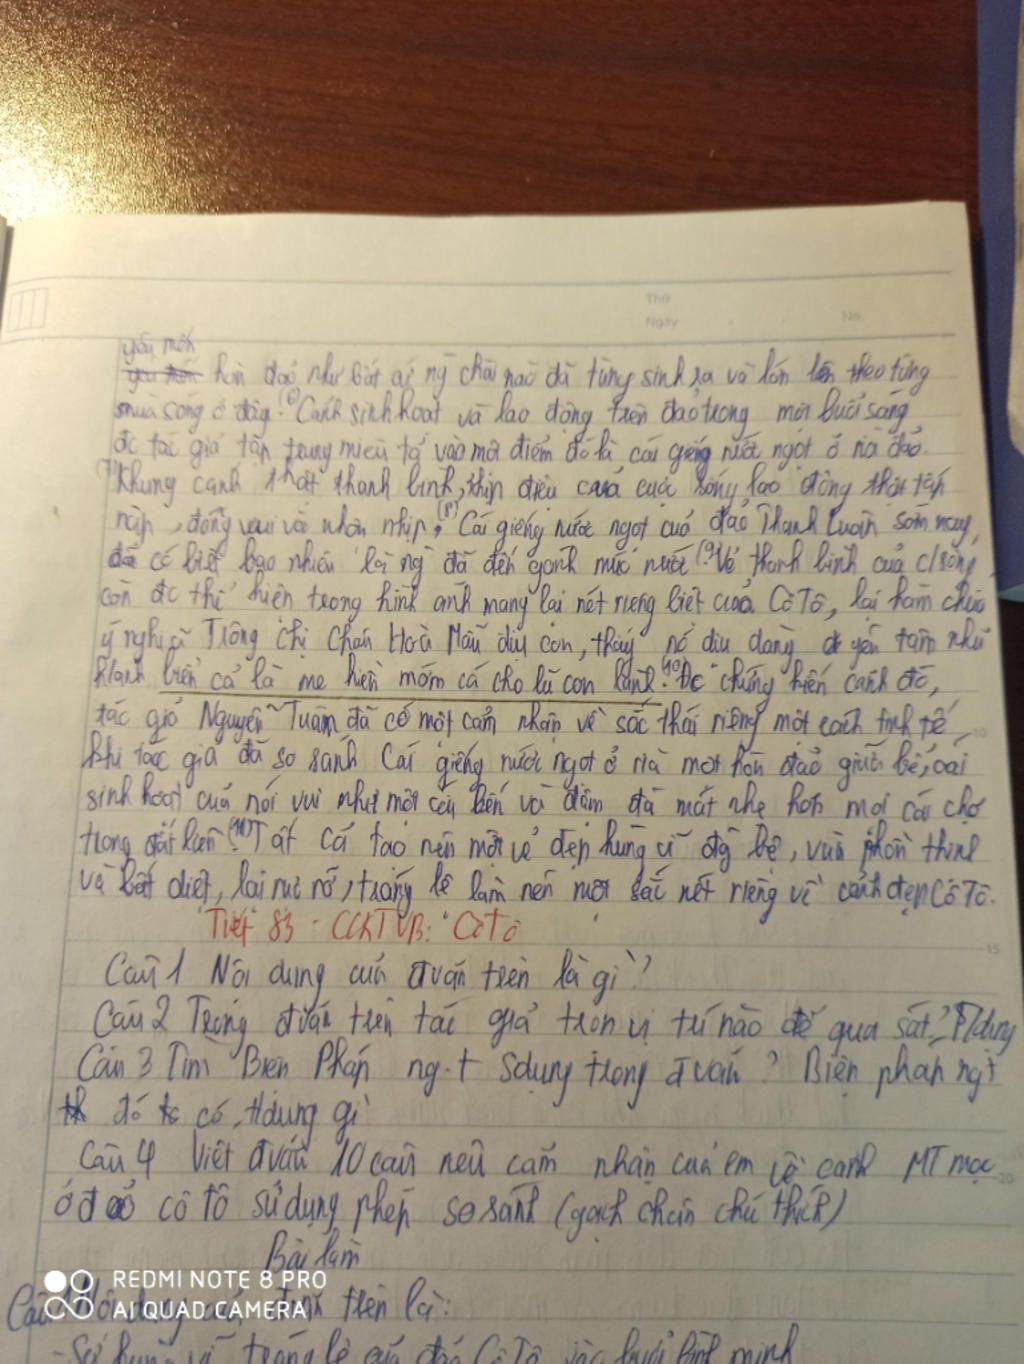 Thứ
Ngày No.
yêu mến
hòn đảo như bất cứ ng chài nào đã từng sinh ra và lớn lên theo từng
mùa sóng ở đây. (6) Cảnh sinh hoạt và lao động trên đảo trong một buổi sáng
đc tác giả tập trung miêu tả vào một điểm đó là cái giếng nước ngọt ở rìa đảo.
(7) Khung cảnh thật thanh bình, nhịp điệu của cuộc sống lao động thật tấp
nập, đông vui và nhộn nhịp. (8) Cái giếng nước ngọt của đảo Thanh Luân sớm nay,
đã có biết bao nhiêu là ng đã đến gánh múc nước. (9) Vẻ thanh bình của c/sống
còn đc thể hiện trong hình ảnh mang lại nét riêng biệt của Cô Tô, lại hàm chứa
ý nghĩa Trông chị Châu Hoà Mãn địu con, thấy nó dịu dàng yên tâm như
h/ảnh biển cả là mẹ hiền mớm cá cho lũ con lành. (10) Đc chứng kiến cảnh đó,
tác giả Nguyễn Tuân đã có một cảm nhận về sắc thái riêng một cách tinh tế
khi tác giả đã so sánh Cái giếng nước ngọt ở rìa một hòn đảo giữa bể, cái
sinh hoạt của nó vui như một cái bến và đậm đà mát nhẹ hơn mọi cái chợ
trong đất liền. (11) Tất cả tạo nên một vẻ đẹp hùng vĩ, vừa phồn thịnh
và bất diệt, lại rực rỡ, tráng lệ làm nên một sắc nét riêng về cảnh đẹp Cô Tô.
Tiết 83: CCKTVB: Cô Tô
Câu 1 Nội dung của đ văn trên là gì?
Câu 2 Trong đ văn trên tác giả chọn vị trí nào để qua sát? T/dụng
Câu 3 Tìm Biện Pháp ng.t Sdụng trong đ văn? Biện pháp ngt
đó có, t/dụng gì
Câu 4 Viết đ văn 10 câu nêu cảm nhận của em về cảnh MT mọc
ở đảo cô tô sử dụng phép so sánh (gạch chân chú thích)
Bài làm
REDMI NOTE 8 PRO
AI QUAD CAMERA
Câu 1 Nội dung của đ văn trên là:
- Sự hùng vĩ tráng lệ của đảo Cô Tô vào buổi bình minh